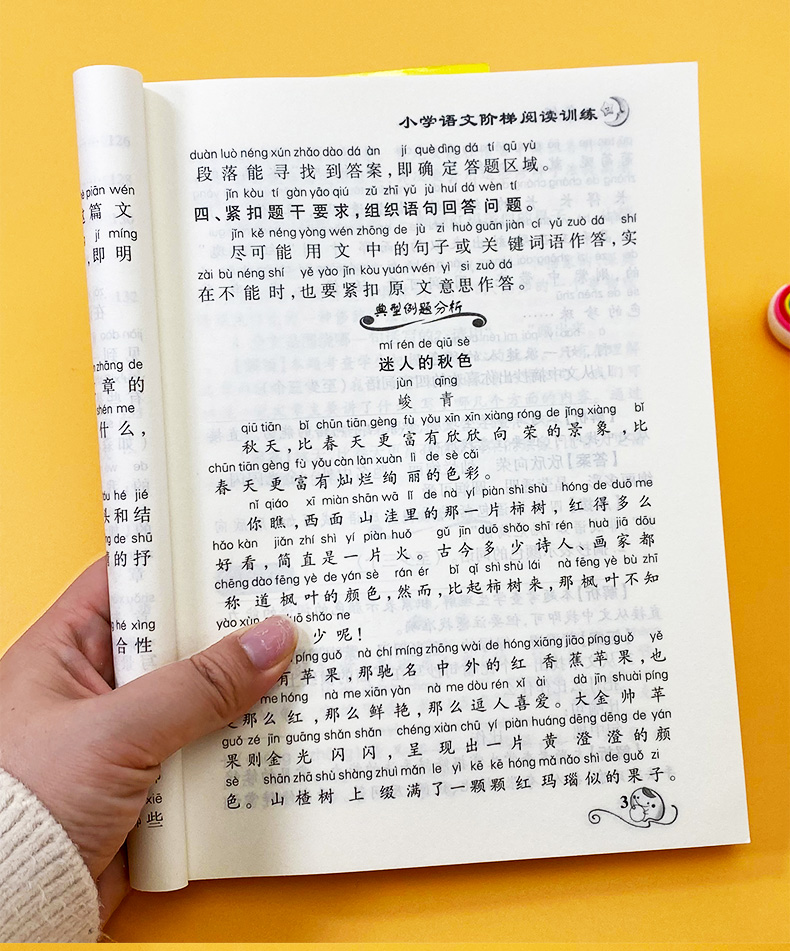 小学语文阶梯阅读训练
duàn luò néng xún zhǎo dào dá àn jí què dìng dá tí qū yù
段落能寻找到答案,即确定答题区域。
jǐn kòu tí gàn yāo qiú zǔ zhī yǔ jù huí dá wèn tí
四、紧扣题干要求,组织语句回答问题。
jǐn kě néng yòng wén zhōng de jù zi huò guān jiàn cí yǔ zuò dá shí
尽可能用文中的句子或关键词语作答,实
zài bù néng shí yě yào jǐn kòu yuán wén yì si zuò dá
在不能时,也要紧扣原文意思作答。
典型例题分析
mí rén de qiū sè
迷人的秋色
jùn qīng
峻青
qiū tiān bǐ chūn tiān gèng fù yǒu xīn xīn xiàng róng de jǐng xiàng bǐ
秋天,比春天更富有欣欣向荣的景象,比
chūn tiān gèng fù yǒu càn làn xuàn lì de sè cǎi
春天更富有灿烂绚丽的色彩。
nǐ qiáo xī miàn shān wā lǐ de nà yí piàn shì shù hóng de duō me
你瞧,西面山洼里的那一片柿树,红得多么
hǎo kàn jiǎn zhí shì yí piàn huǒ gǔ jīn duō shǎo shī rén huà jiā dōu
好看,简直是一片火。古今多少诗人、画家都
chēng dào fēng yè de yán sè rán ér bǐ qǐ shì shù lái nà fēng yè bù zhī
称道枫叶的颜色,然而,比起柿树来,那枫叶不知
yào xùn shǎo ne
少呢!
píng guǒ nà chí míng zhōng wài de hóng xiāng jiāo píng guǒ yě
有苹果,那驰名中外的红香蕉苹果,也
me hóng nà me xiān yàn nà me dòu rén xǐ ài dà jīn shuài píng
那么红,那么鲜艳,那么逗人喜爱。大金帅苹
guǒ zé jīn guāng shǎn shǎn chéng xiàn chū yí piàn huáng dēng dēng de yán
果则金光闪闪,呈现出一片黄澄澄的颜
sè shān zhā shù shàng zhuì mǎn le yì kē kē hóng mǎ nǎo shì de guǒ zi
色。山楂树上缀满了一颗颗红玛瑙似的果子。
3